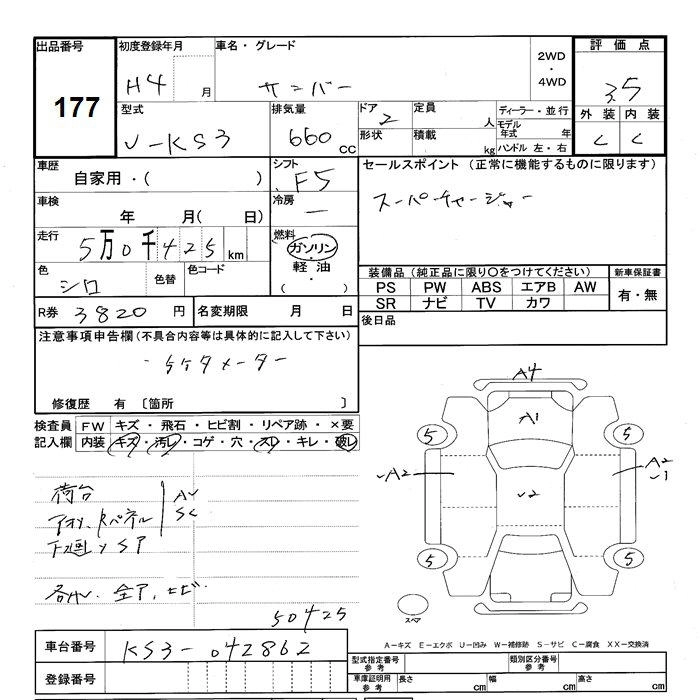 出品番号
177
初度登録年月
H4 月
車名・グレード
サンバー
2WD
・
4WD
評価点
3.5
外装 内装
C C
型式
V-KS3
排気量
660 cc
ドア
2
形状
定員
人
積載
kg
ディーラー・並行
モデル年式 年
ハンドル 左・右
車歴
自家用・( )
シフト
F5
車検
年 月( 日)
冷房
―
走行
5万0千425km
燃料
ガソリン
・
軽油
( ・ )
色
シロ
色替
色コード
R券 3820 円
名変期限 月 日
セールスポイント (正常に機能するものに限ります)
スーパーチャージャー
装備品(純正品に限り○をつけてください)
PS PW ABS エアB AW
SR ナビ TV カワ
新車保証書
有・無
後日品
注意事項申告欄(不具合内容等は具体的に記入して下さい)
・5ケタメーター
修復歴 有 〔箇所 〕
検査員記入欄
FW キズ・飛石・ヒビ割・リペア跡・×要
内装 キズ・汚レ・コゲ・穴・スレ・キレ・破レ
荷台
AU
SC
50425
A4
A1
5 5
A2
A2
5 5
スペア
A―キズ E―エクボ U―凹み W―補修跡 S―サビ C―腐食 XX―交換済
車台番号 KS3-042862
登録番号
型式指定番号 参考
類別区分番号 参考
車庫証明用 参考
長さ cm
幅 cm
高さ cm